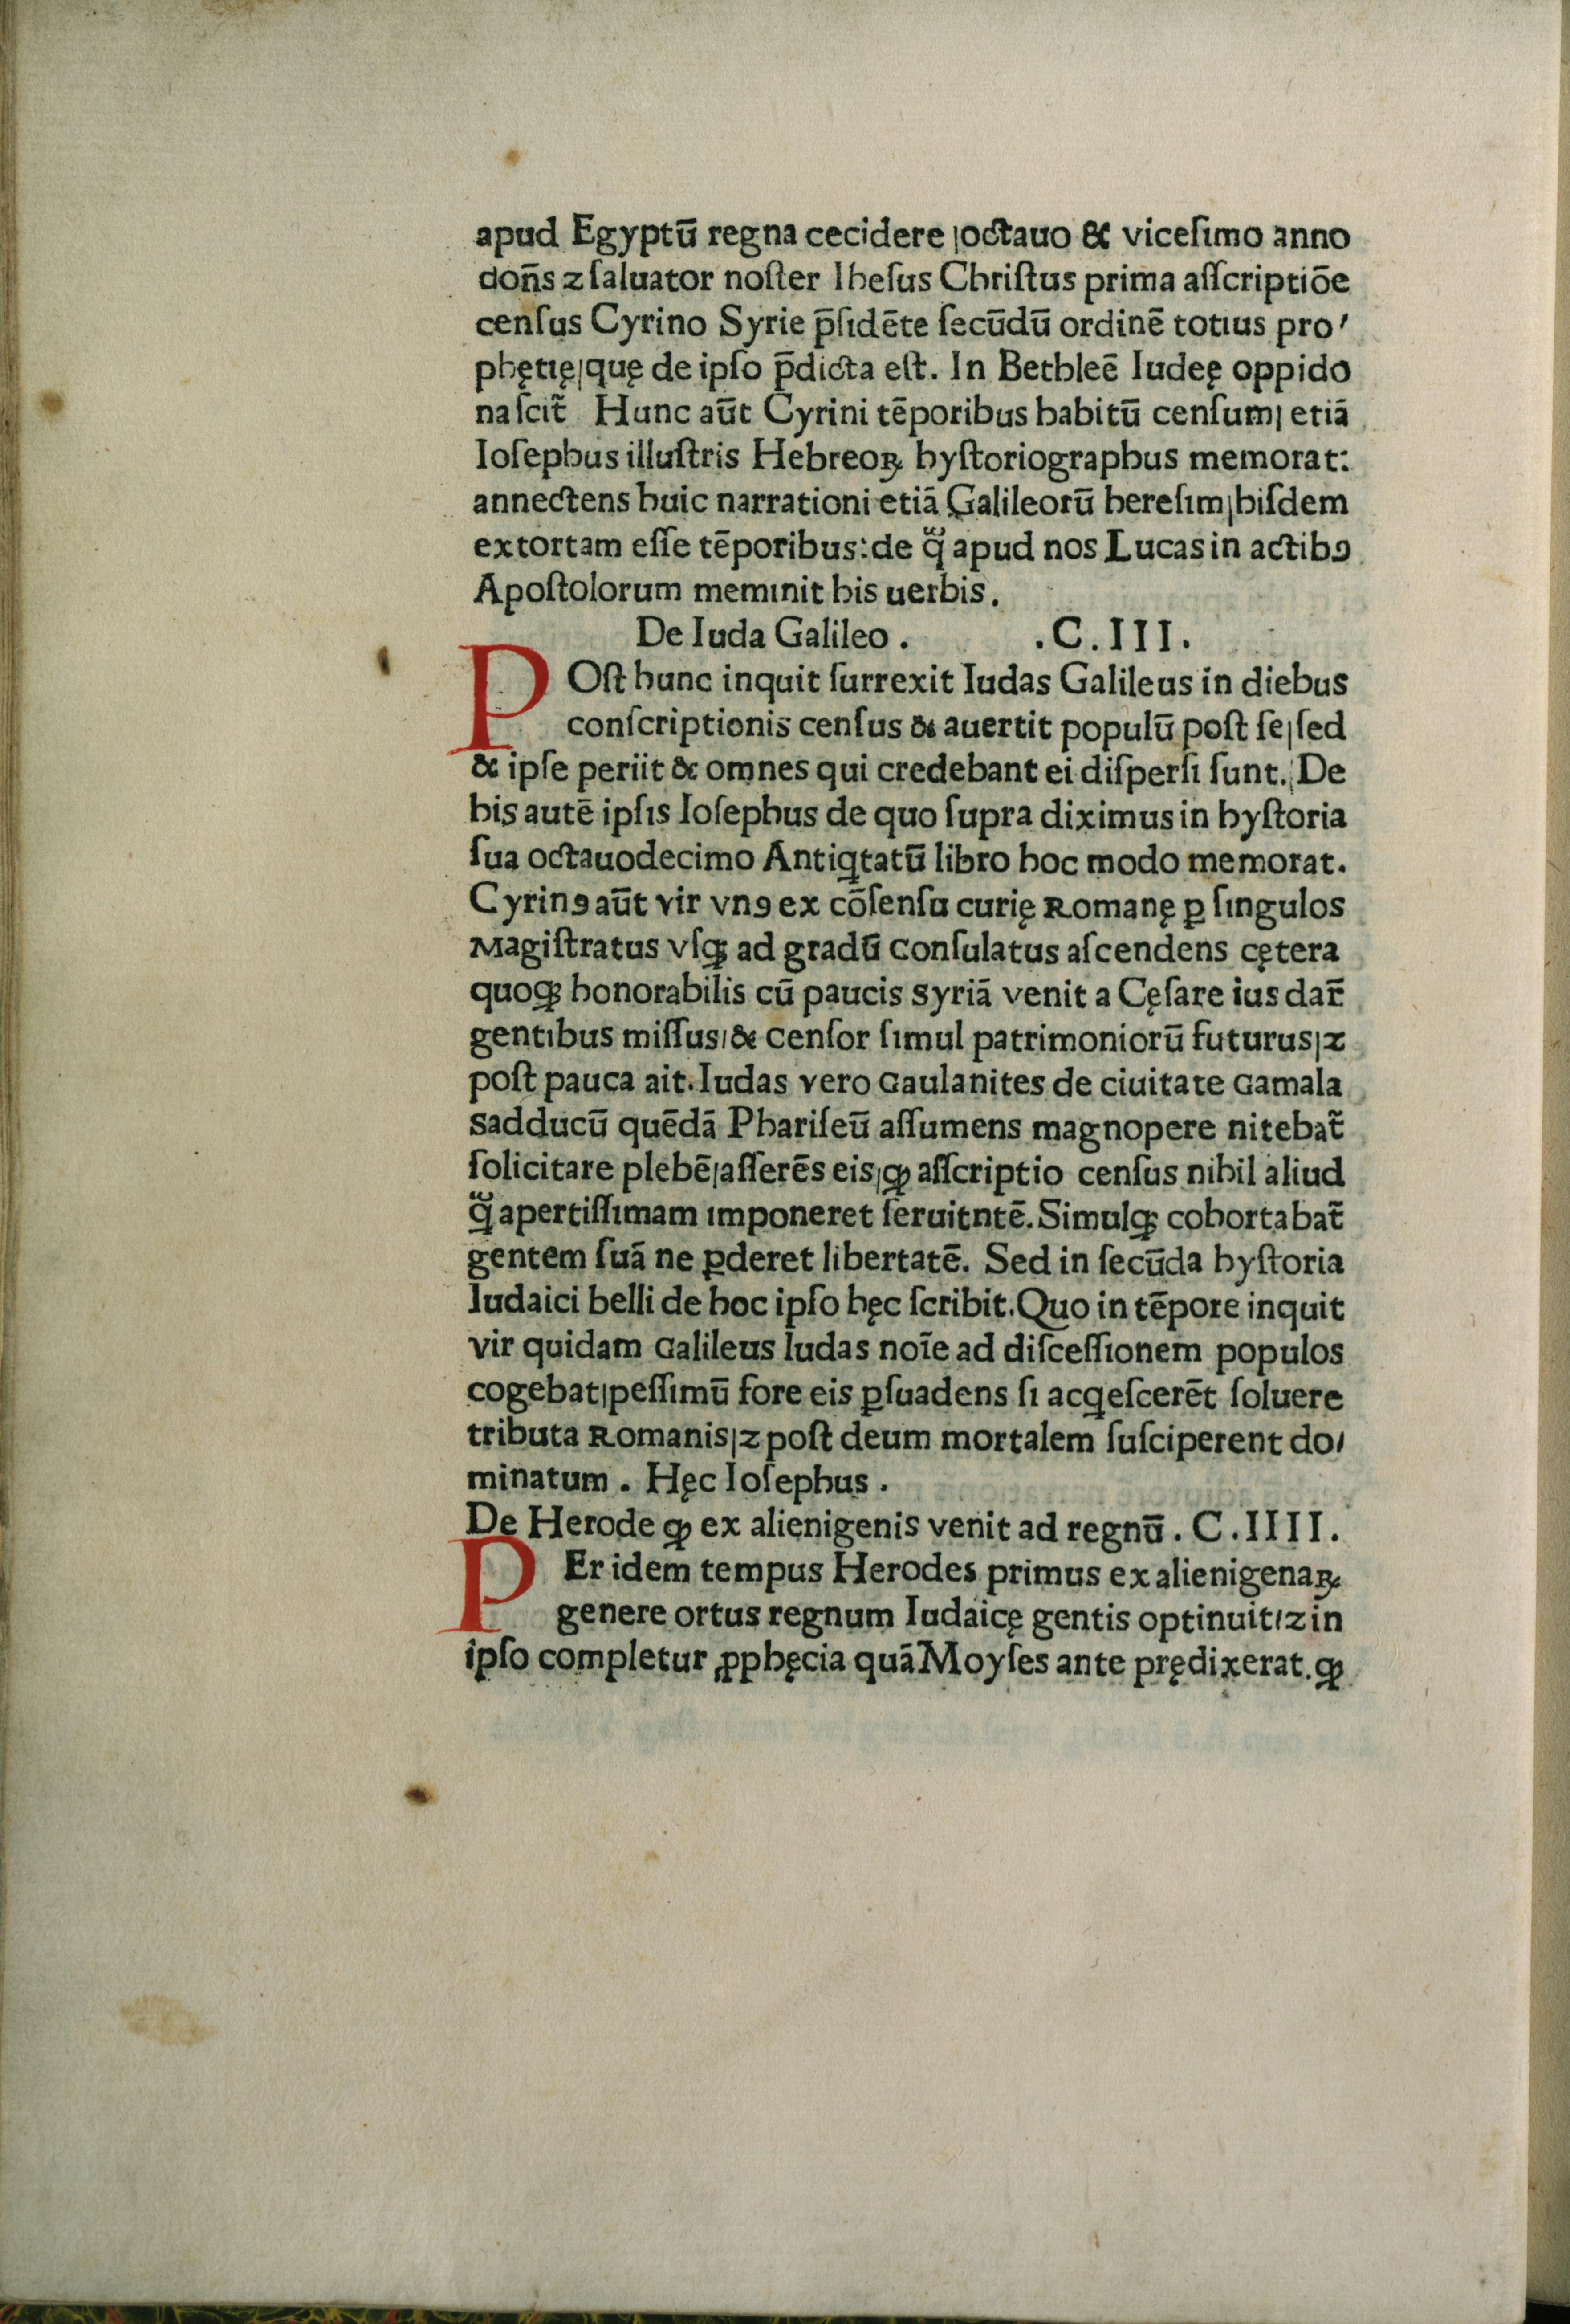 apud Egyptū regna cecidere ꞁoctauo & viceſimo anno
don̄s ⁊ ſaluator noſter Iheſus Chriſtus prima aſſcriptiōe
cenſus Cyrino Syrie p̄ſidēte ſecūdū ordinē totius pro/
phętięꞁquę de ipſo p̄dicta eſt. In Bethleē Iudeę oppido
naſcit̄ Hunc aūt Cyrini tēporibus habitū cenſumꞁ etiā
Ioſephus illuſtris Hebreoꝝ hyſtoriographus memorat:
annectens huic narrationi etiā Galileorū hereſimꞁhiſdem
extortam eſſe tēporibus:de qᷓ apud nos Lucas in actibꝯ
Apoſtolorum meminit his uerbis.
De Iuda Galileo . .C.III.
POſt hunc inquit ſurrexit Iudas Galileus in diebus
conſcriptionis cenſus & auertit populū poſt ſeꞁſed
& ipſe periit & omnes qui credebant ei diſperſi ſunt. De
his autē ipſis Ioſephus de quo ſupra diximus in hyſtoria
ſua octauodecimo Antiꝗtatū libro hoc modo memorat.
Cyrinꝯ aūt vir vnꝯ ex cōſenſu curię Romanę ꝑ ſingulos
Magiſtratus vſꝙ ad gradū Conſulatus aſcendens cętera
quoꝙ honorabilis cū paucis Syriā venit a Cęſare ius dar̄
gentibus miſſus/& Cenſor ſimul patrimoniorū futurusꞁ⁊
poſt pauca ait. Iudas vero Gaulanites de ciuitate Gamala
Sadducū quēdā Phariſeū aſſumens magnopere nitebat̄
ſolicitare plebēꞁaſſerēs eisꞁꝙ aſſcriptio cenſus nihil aliud
qᷓ apertiſſimam imponeret ſeruitntē. Simulꝙ cohortabat̄
gentem ſuā ne ꝑderet libertatē. Sed in ſecūda hyſtoria
Iudaici belli de hoc ipſo hęc ſcribit. Quo in tēpore inquit
vir quidam Galileus Iudas noīe ad diſceſſionem populos
cogebatꞁpeſſimū fore eis ꝑſuadens ſi acꝗeſcerēt ſoluere
tributa Romanisꞁ⁊ poſt deum mortalem ſuſciperent do/
minatum . Hęc Ioſephus .
De Herode ꝙ ex alienigenis venit ad regnū . C.IIII.
PEr idem tempus Herodes primus ex alienigenaꝝ
genere ortus regnum Iudaicę gentis optinuit/⁊ in
ipſo completur ꝓphęcia quā Moyſes ante prędixerat. ꝙ